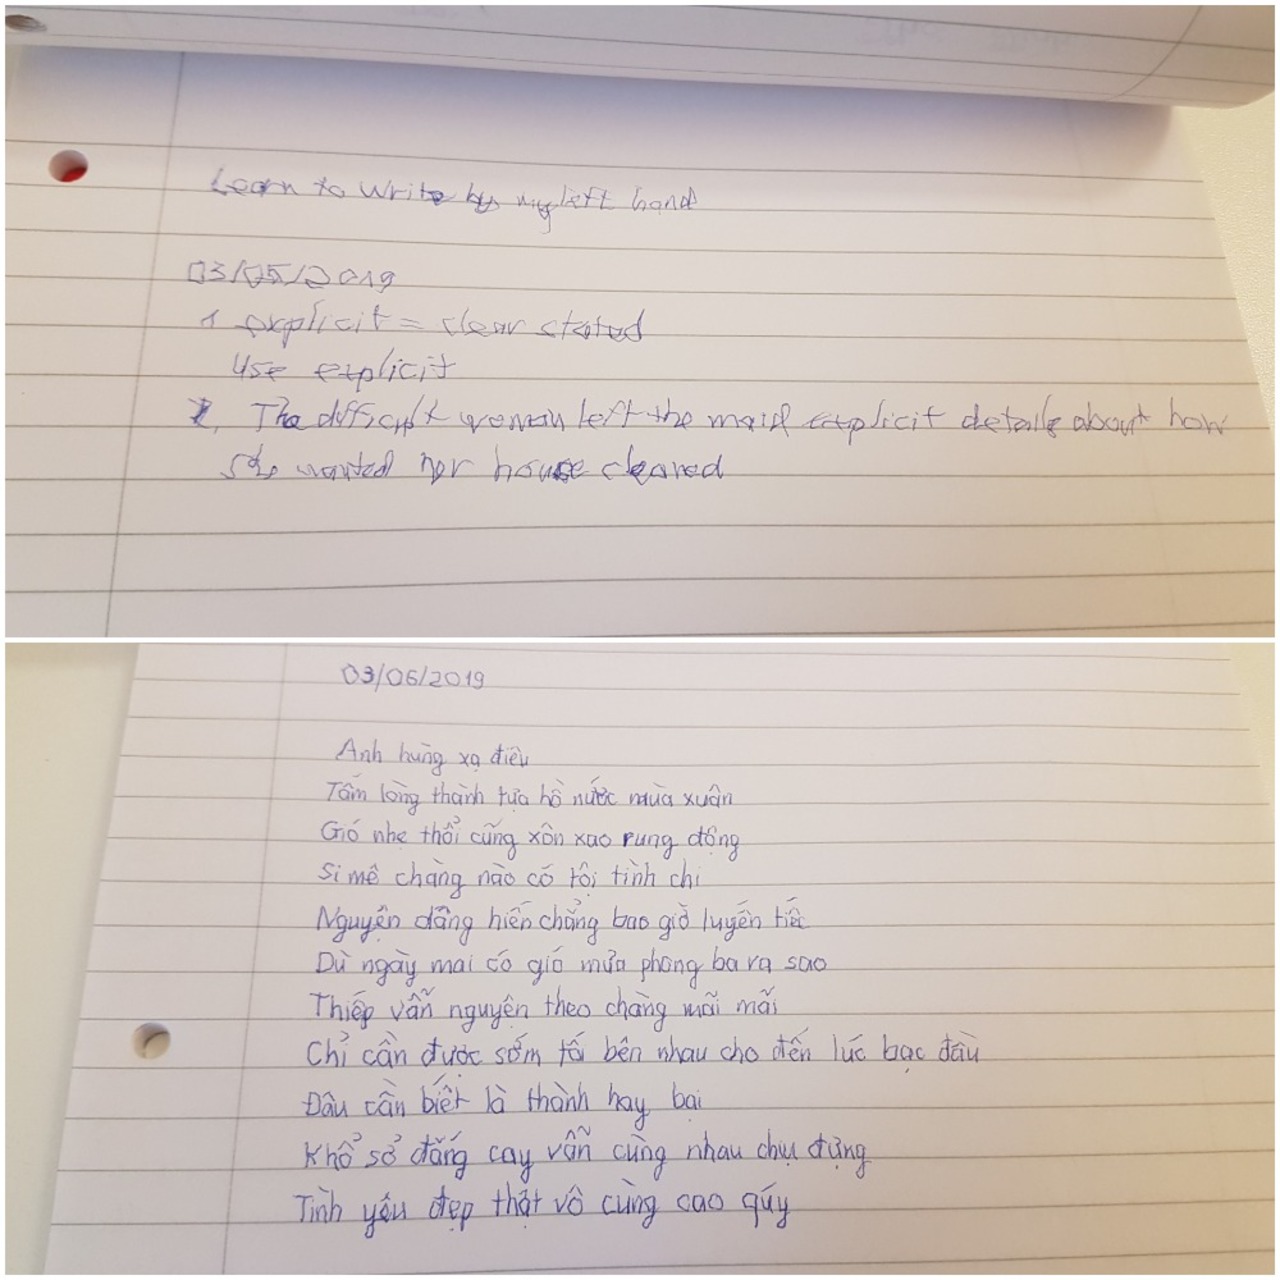 Learn to write by my left hand
03/05/2019
1 explicit = clear stated
Use explicit
2. The difficult woman left the maid explicit details about how
she wanted her house cleaned
03/06/2019
Anh hùng xạ điêu
Tấm lòng thành tựa hồ nước mùa xuân
Gió nhẹ thổi cũng xôn xao rung động
Si mê chàng nào có tội tình chi
Nguyện dâng hiến chẳng bao giờ luyến tiếc
Dù ngày mai có gió mưa phong ba ra sao
Thiếp vẫn nguyện theo chàng mãi mãi
Chỉ cần được sớm tối bên nhau cho đến lúc bạc đầu
Đâu cần biết là thành hay bại
Khổ sở đắng cay vẫn cùng nhau chịu đựng
Tình yêu đẹp thật vô cùng cao qúy